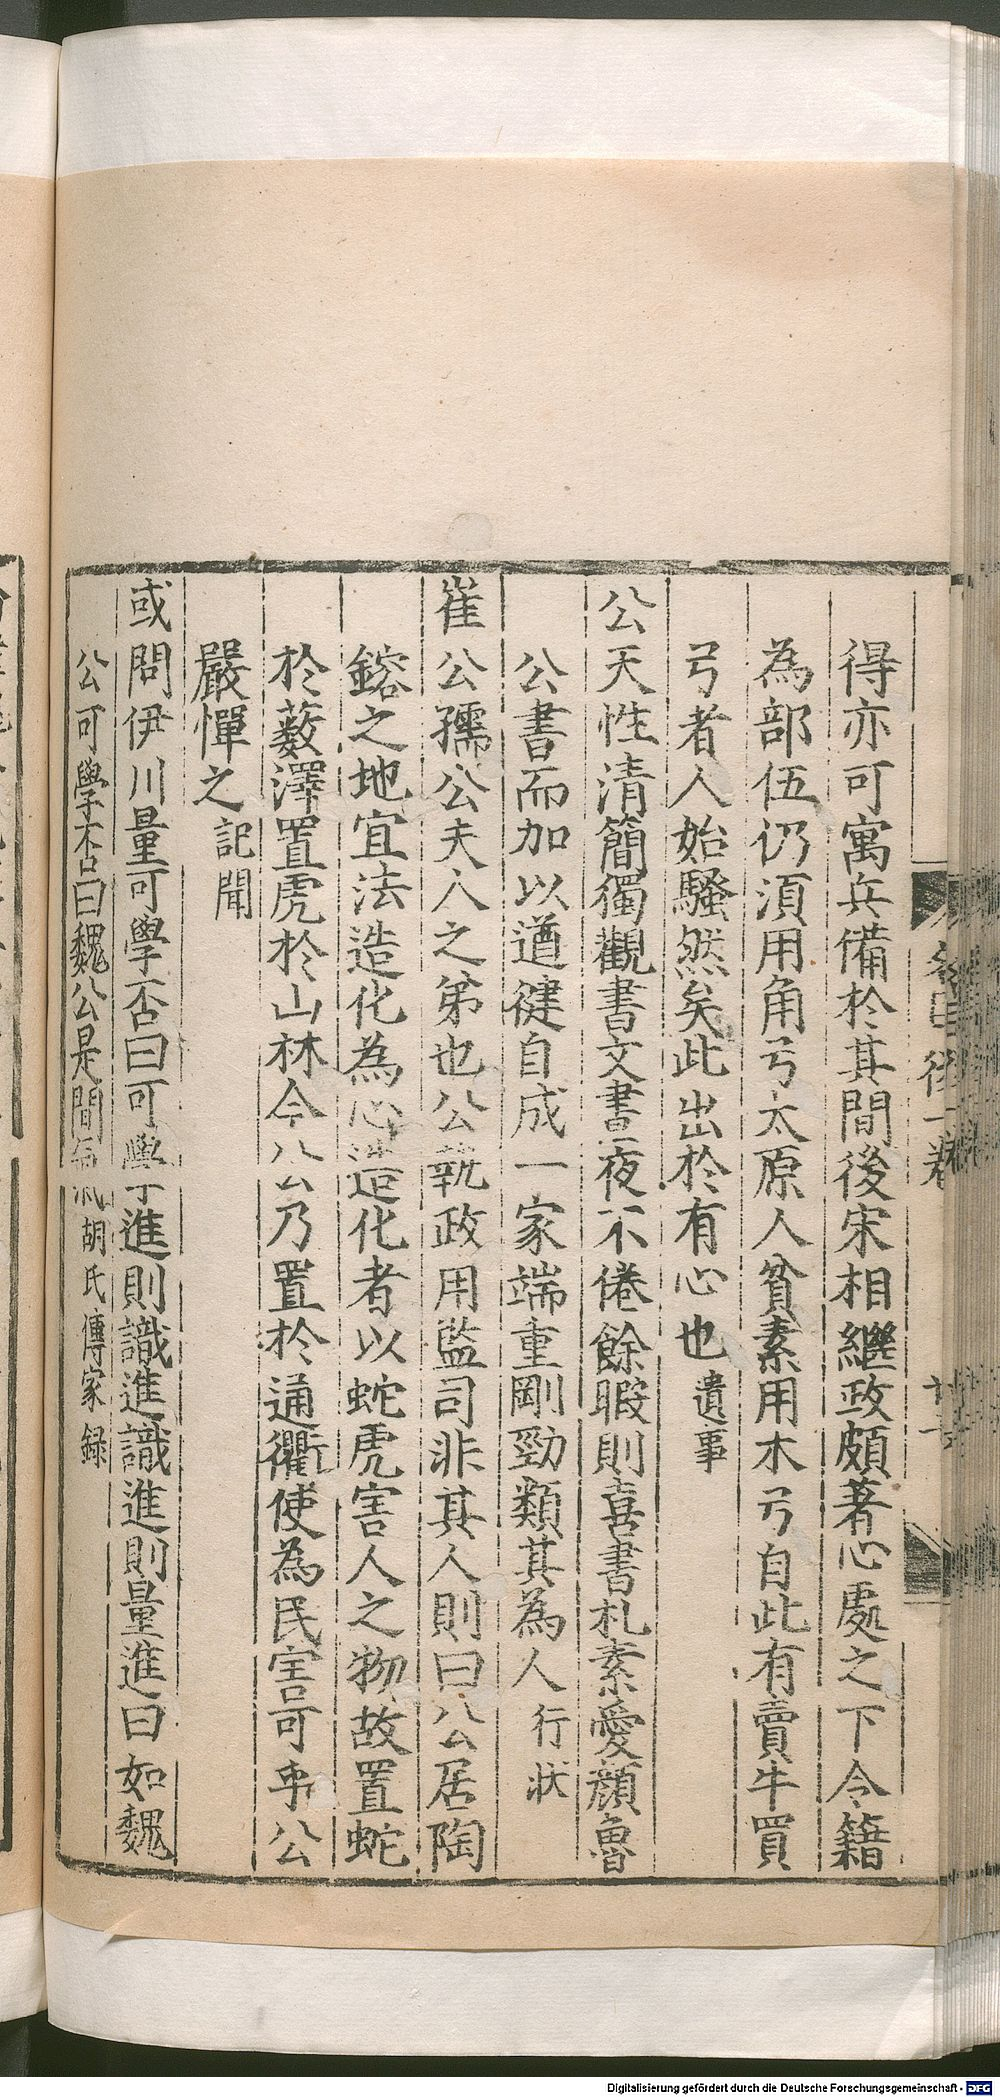 得亦可寓兵備於其間後宋相繼政頗著心處之下令籍
為部伍仍湏用角弓太原人貧素用木弓自此有賣牛買
弓者人始騷然矣此出於有心也遺事
公天性清簡獨觀書文書夜不倦餘暇則喜書札素愛顏魯
公書而加以遒健自成一家端重剛勁類其為人行狀
崔公孺公夫人之弟也公執政用監司非其人則曰公居陶
鎔之地宜法造化為心造化者以蛇虎害人之物故置蛇
於藪澤置虎於山林今公乃置於通衢使為民害可乎公
嚴憚之記聞
或問伊川量可學否曰可學進則識進識進則量進曰如魏
公可學否曰魏公是間氣胡氏傳家録
名臣後一卷
Digitalisierung gefördert durch die Deutsche Forschungsgemeinschaft - DFG